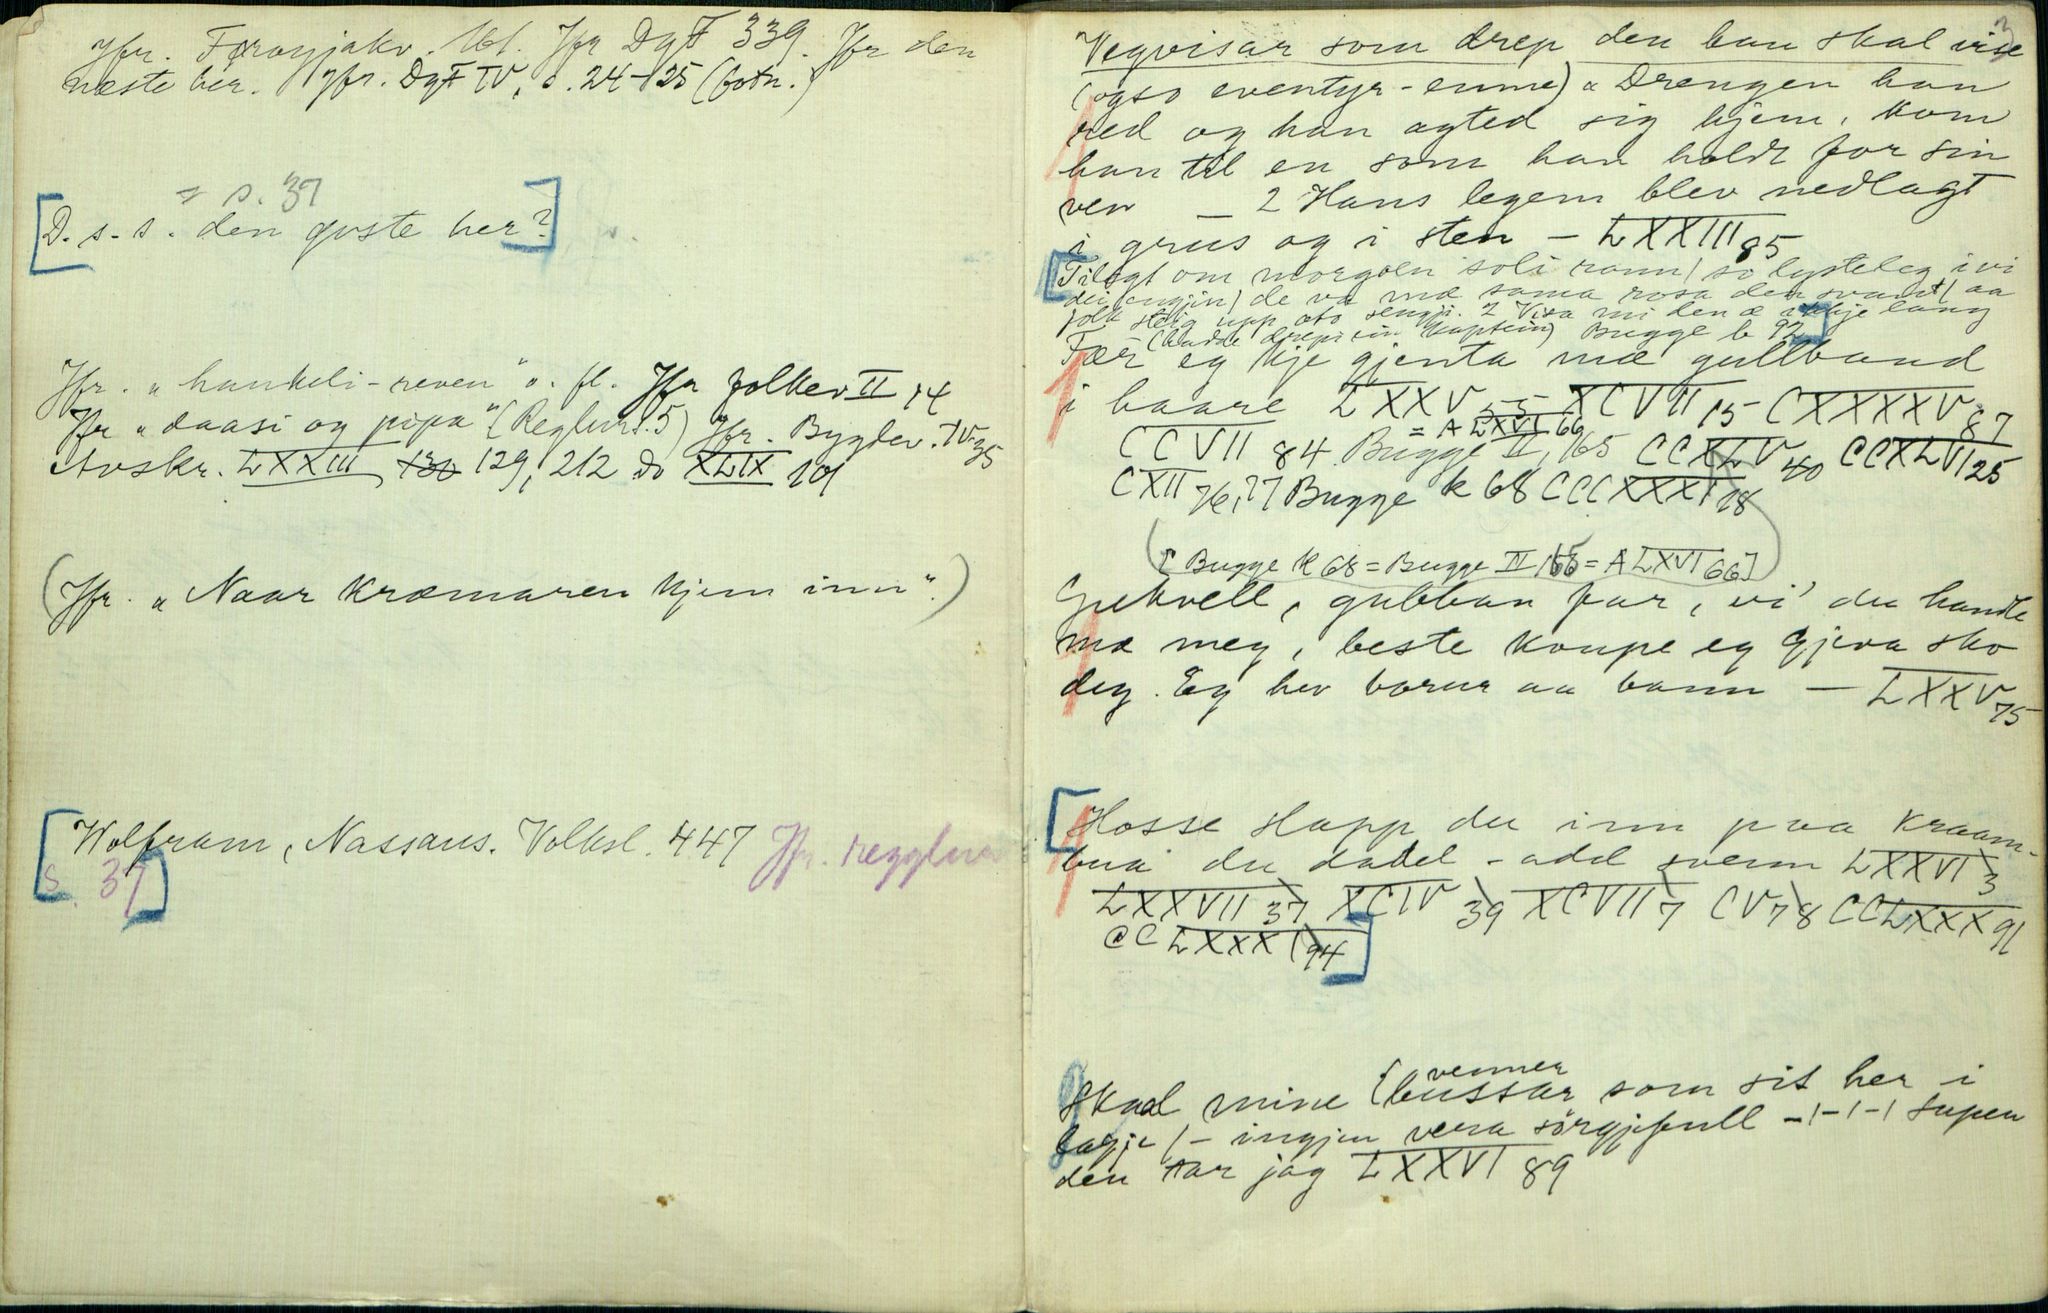 Jfr. Færøyjakv. 161. Jfr DgF 339. Jfr den
næste her. Jfr. DgF IV, s. 24-25 (botn.)
= s. 37
[D. s. s. den øvste her?]
Jfr. "hankeli-reven" o. fl. Jfr folkev II 14
Jfr "daasi og pipa" (Reglur s. 5) Jfr. Bygdev. IV 35
Avskr. LXXIII 130 129, 212 Do XLIX 101
(Jfr. "Naar Kræmaren kjem inn".)
[Wolfram, Nassaus. Volksl. 447 Jfr. regglur
s. 37]
3
Vegvisar som drep den han skal vise
(ogso eventyr-emne) "Drengen han
red og han agted sig hjem, kom
han til en som han holdt for sin
ven — 2 Hans legem blev nedlagt
i grus og i sten — LXXIII 85
[Tilegt om morgoen soli rann / so lysteleg i vi
dei engjin / de va mæ sama rosa den svant / aa
folk steig upp oto sengji. 2 Visa mi den æ ikkje lang
(hadde drepi ein kaptein) Bugge b 92]
Fær eg kje gjenta mæ gullband
i haare LXXV 55 XCVII 15 CXXXXV 87
= A LXVI 66
CCVII 84 Bugge II, 165 CCXLV 40 CCXLVI 25
CXII 76, 77 Bugge k 68 CCCXXXI 18
([Bugge k 68 = Bugge II 165 = A LXVI 66])
Gukvell, gubban far, vi' du handle
mæ meg, beste koupe eg gjeva sko
deg. Eg hev varur aa bann — LXXV 75
[Hosse slapp du inn paa kraam-
bua du dadel-adel svenn LXXVI 3
LXXVII 37 XCIV 39 XCVII 7 CV 78 CCLXXX 91
CCLXXXI 94]
venner
Skaal mine {bussar som sit her i
lagje / - ingjen vera sørgjefull -1-1-1 supen
den tar jag LXXVI 89